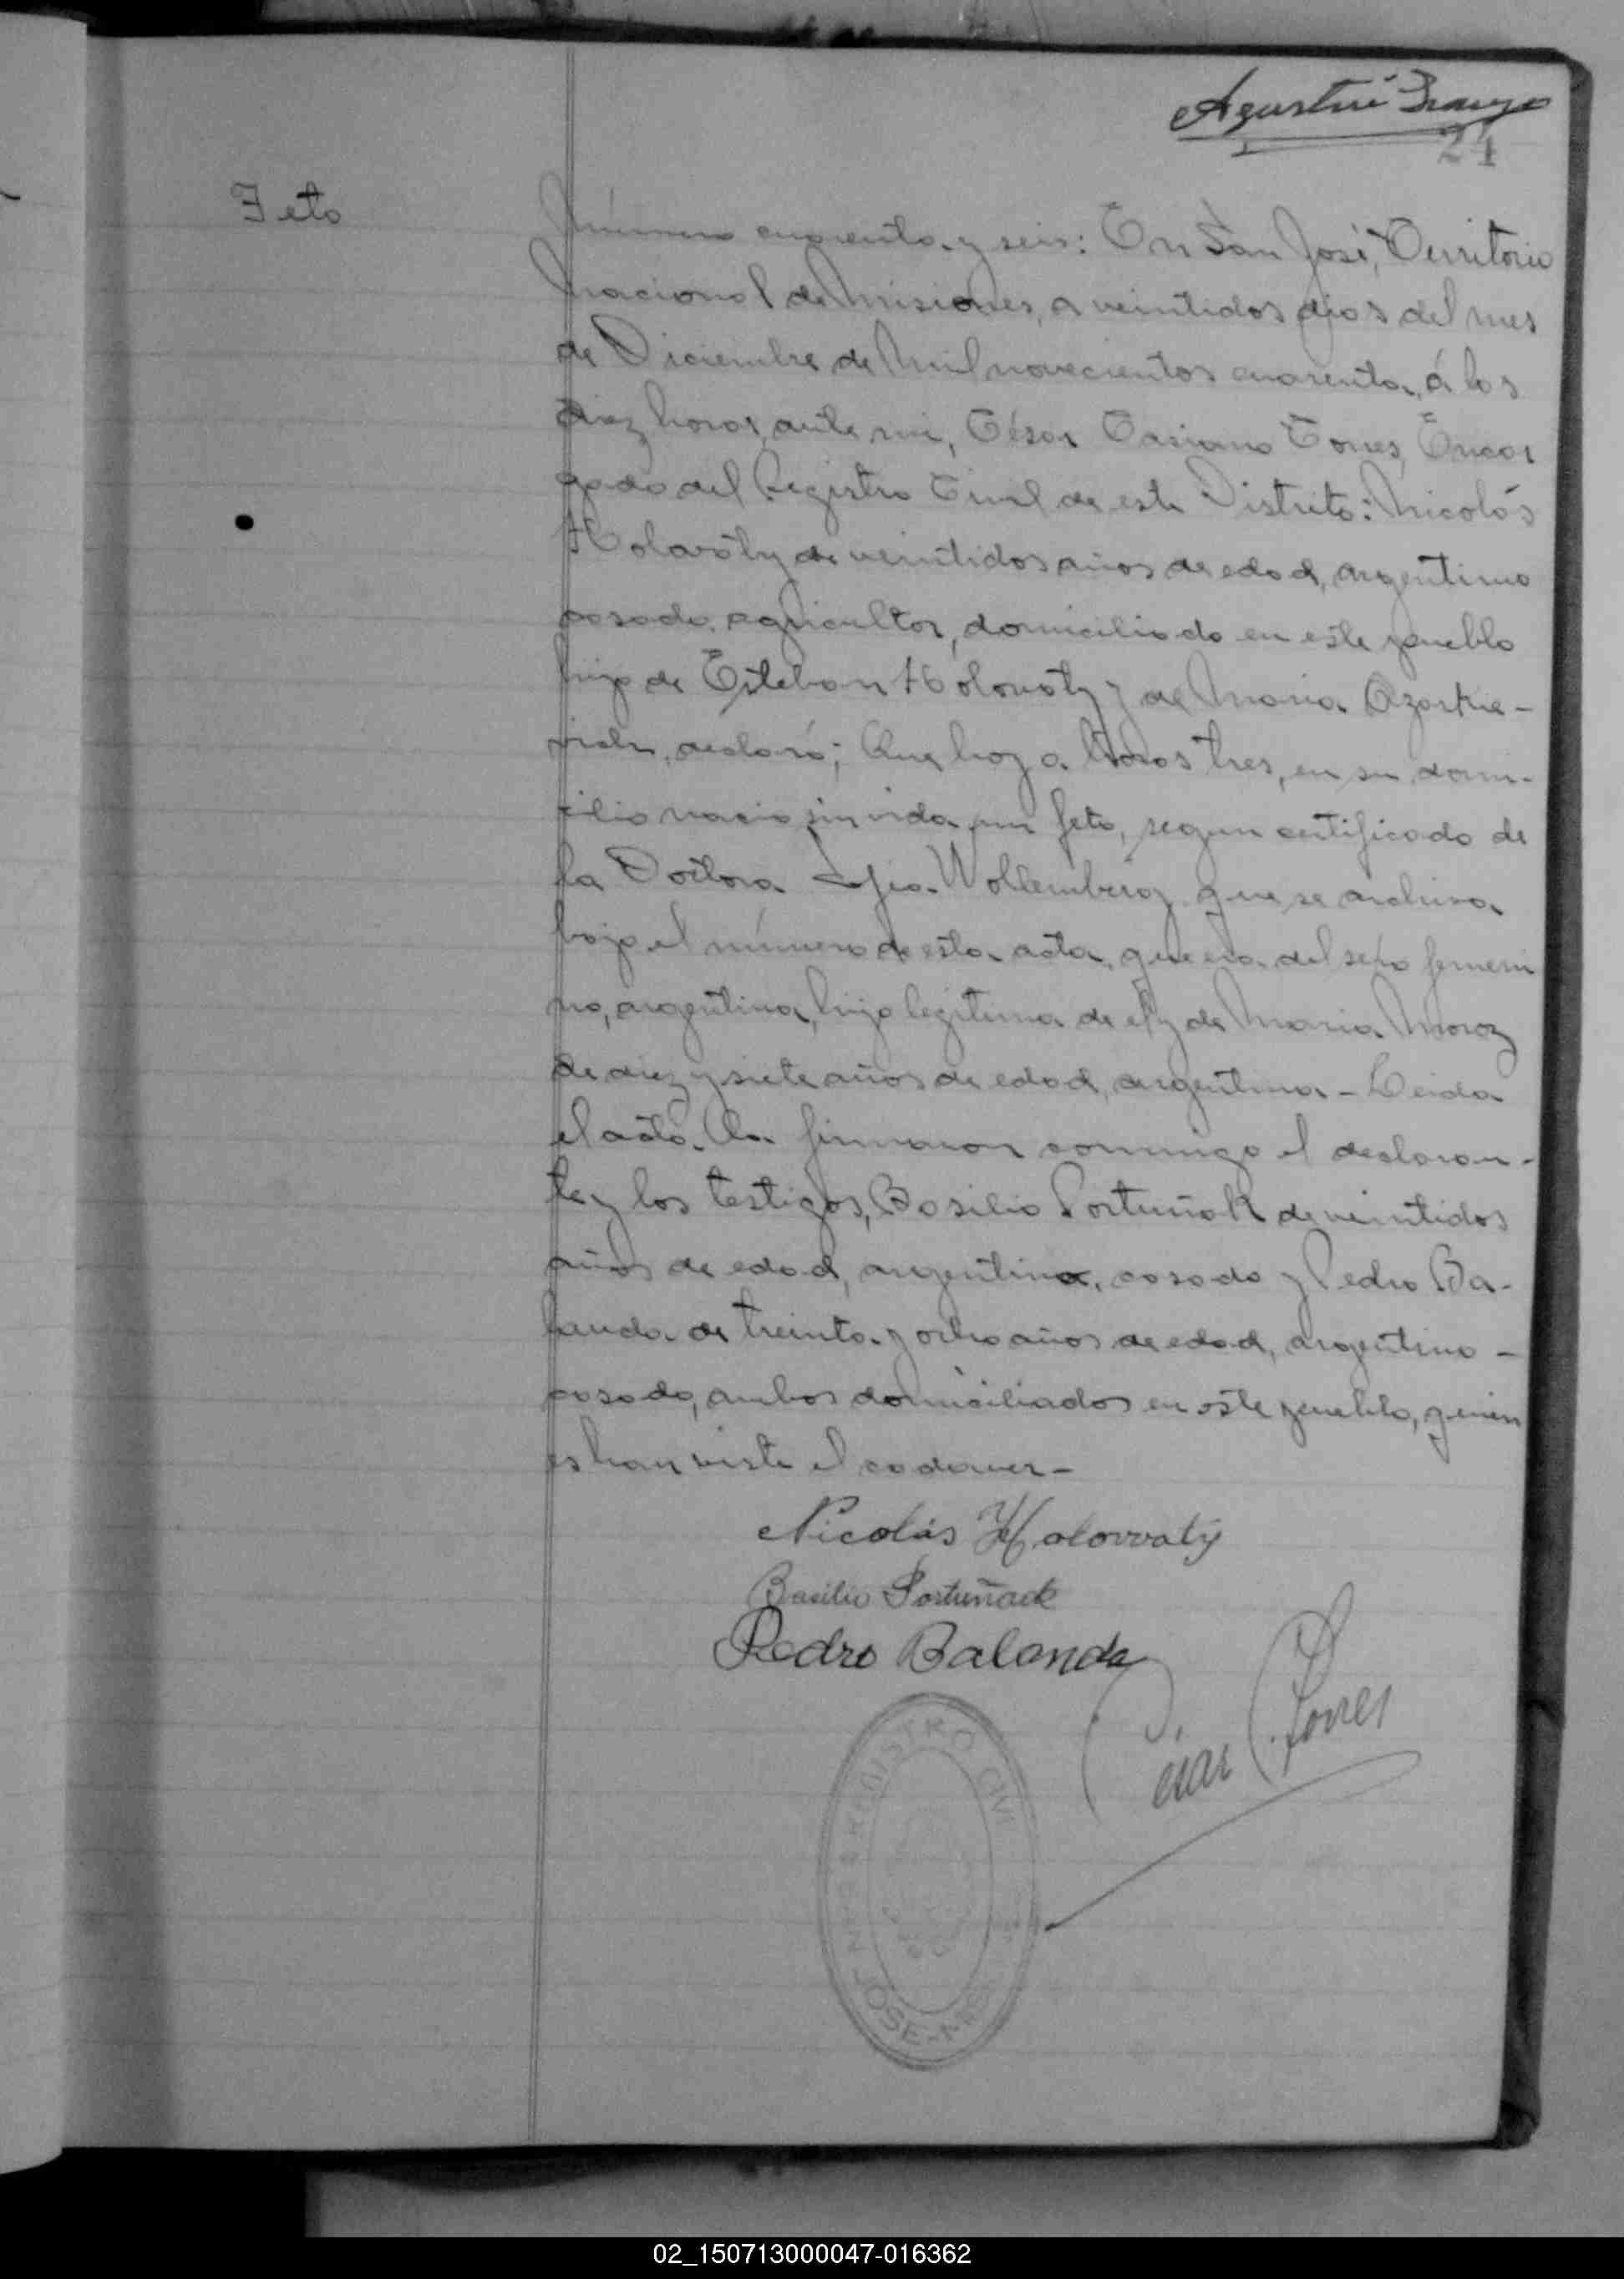 Agustín
24
Feto
Número cuarenta y seis: En San José, Territorio
Nacional de Misiones, a veintidos dias del mes
de Diciembre de Mil novecientos cuarenta, á las
diez horas, ante mi, César Casiano Torres, Encar
gado del Registro Civil de este Distrito: Nicolás
Holovaty de veintidos años de edad, argentino
casado, agricultor, domiciliado en este pueblo
hijo de Esteban Holovaty y de Maria
declaró; Que hoy a horas tres, en su domi-
cilio nacio sin vida un feto, segun certificado de
la Doctora Wollemberg que se archiva
bajo el número de esta acta, que era del sexo femeni
no, argentina, hija legitima de el y de Maria Moroz
de diez y siete años de edad, argentina - Leida
el acta. La firmaron conmigo el declaran-
te y los testigos, Basilio Portuñak de veintidos
años de edad, argentino, casado y Pedro Ba-
landa de treinta y ocho años de edad, argentino -
casado, ambos domiciliados en este pueblo, quien
es han visto el cadaver -
Nicolás Holowaty
Basilio Portuñack
Pedro Balanda
César C. Torres
REGISTRO CIVIL
JOSE - MIS
02_150713000047-016362